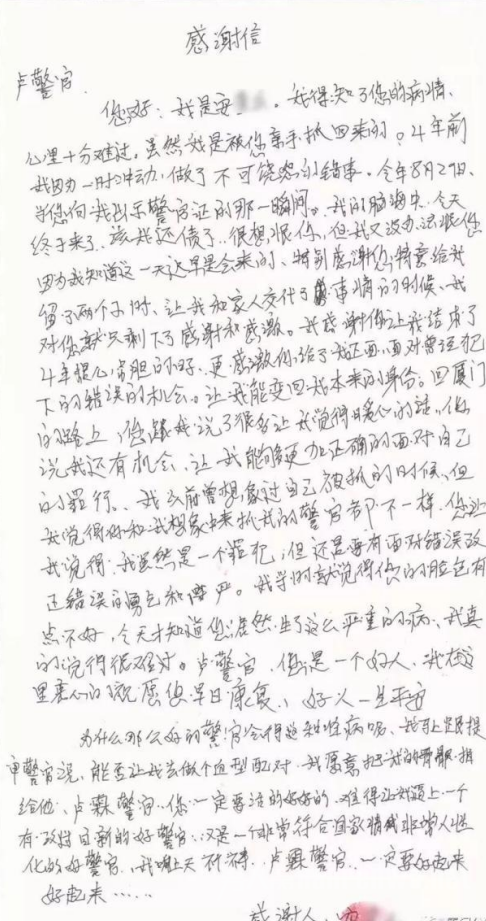 感谢信
卢警官
您好：我是安 。我得知了您的病情、
心里十分难过。虽然我是被你亲手抓回来的。4年前
我因为一时冲动，做了不可饶恕的错事。今年8月29日、
当您向我出示警官证的那一瞬间。我的脑海中、今天
终于来了、该我还债了、很想恨你，但我又没办法恨你
因为我知道这一天迟早是会来的、特别感谢您特意给我
留了两个小时、让我和家人交代了事情的时候、我
对你就只剩下了感谢和感激。我感谢你让我结束了
4年提心吊胆的日子、更感激你给了我还面对曾经犯
下的错误的机会。让我能变回我本来的身份。回厦门
的路上，您跟我说了很多让我觉得暖心的话、你
说我还有机会、让我能够更加正确的面对自己
的罪行、我以前曾想像过自己被抓的时候、但
我觉得你和我想象中来抓我的警官都不一样、您让
我觉得、我虽然是一个罪犯，但还是要有面对错误改
正错误的勇气和尊严。我当时就觉得你的脸色有
点不好，今天才知道您居然生了这么严重的病、我真
的觉得很难过。卢警官，您是一个好人，我在这
里衷心的祝愿您早日康复、好人一生平安
为什么那么好的警官会得这种病呢、我马上跟提
审警官说，能否让我去做个造型配对，我愿意把我的骨髓捐
给他、卢 警官、你一定要活的好好的、难得让我遇上一个
有 的好警官、又是一个非常符合国家 非常人性
化的好警官、我 上天祈祷、卢 警官、一定要好起来
好起来……
感谢人：